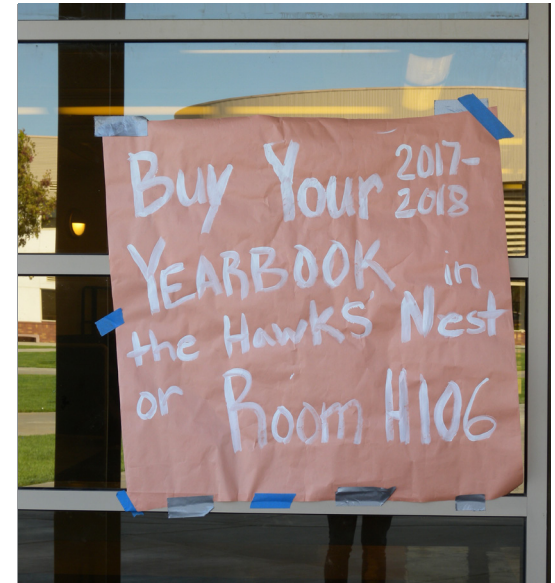 Buy Your 2017-
2018
YEARBOOK in
the HawkS Nest
or Room H106